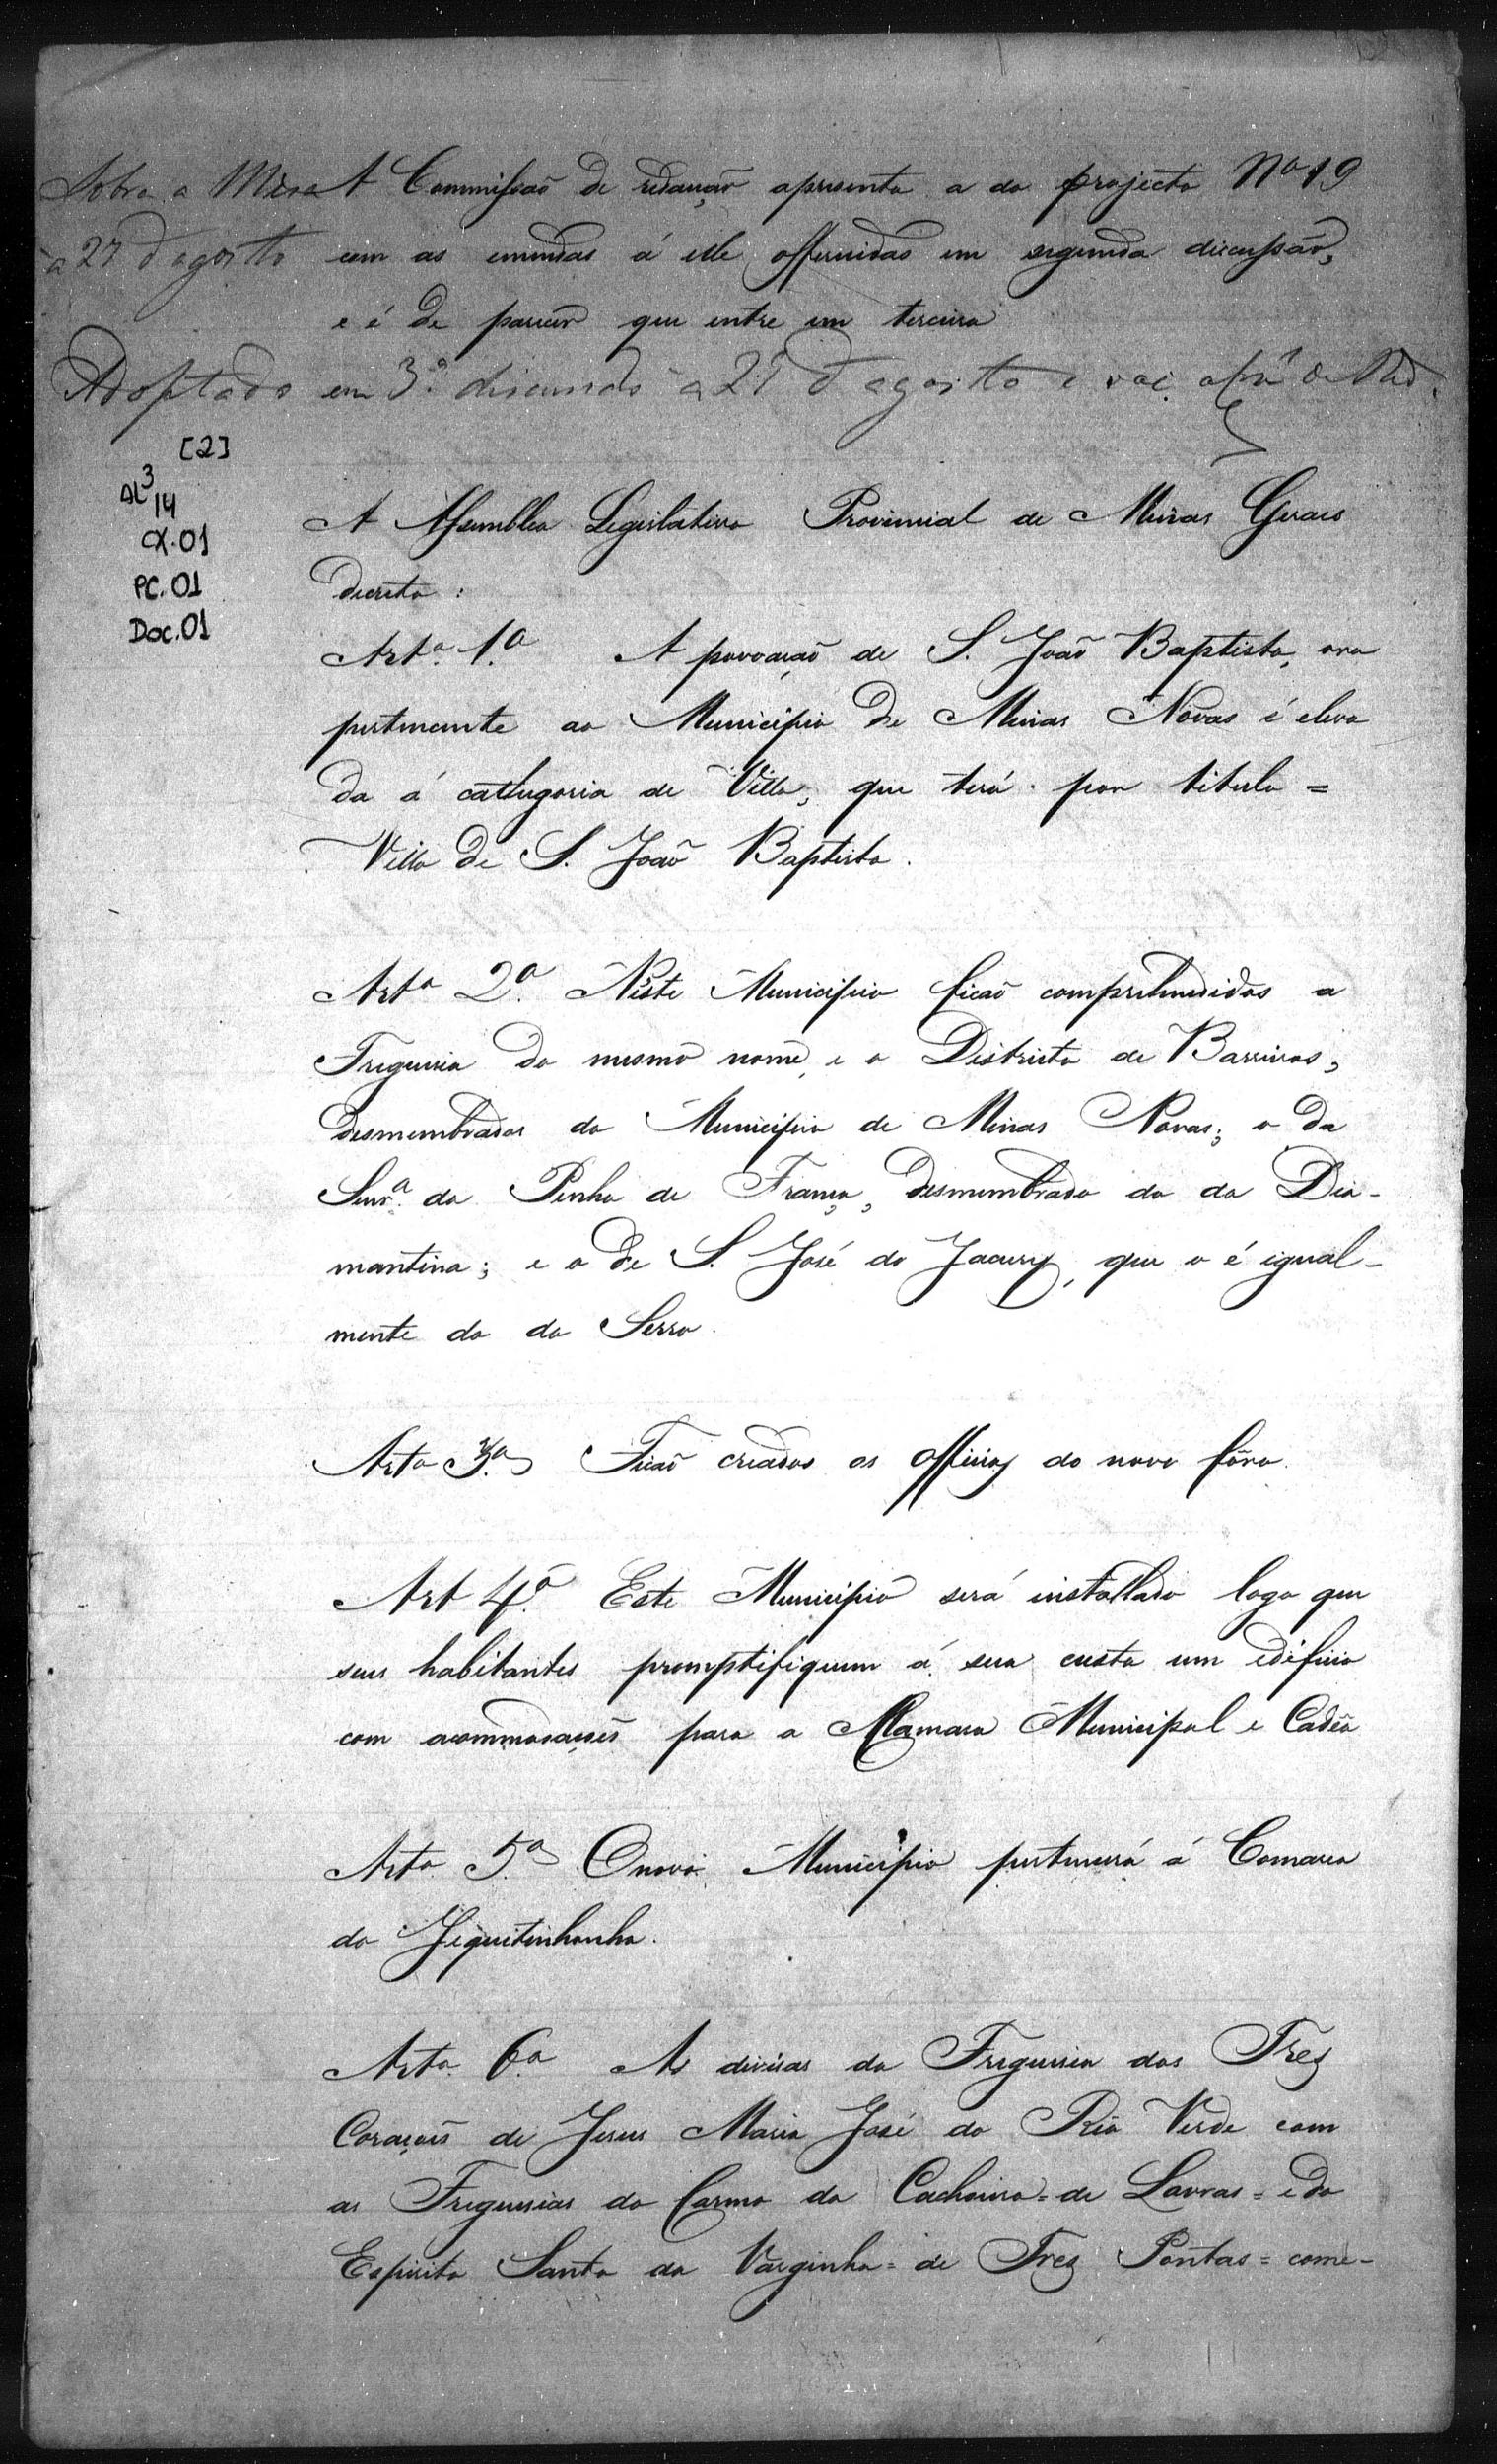 Sobre a Mesa A Commissaõ de redacçaõ apresenta a do projecto Nº 19
a 27 d'agosto com as emendas á elle offerecidas em segunda discussaõ,
e é de parecer que entre em terceira
Adoptado em 3ª discussaõ a 27 d'agosto e vai á de Red.
[2]
AL 3
14
CX.01
PC.01
Doc.01
A Assemblea Legislativa Provincial de Minas Geraes
decreta:
Artº. 1º. A povoaçaõ de S. Joaõ Baptista, ora
pertencente ao Municipio de Minas Novas é eleva
da á cathegoria de Villa, que terá por titulo =
Villa de S. Joaõ Baptista.
Artº 2º. Neste Municipio ficaõ comprehendidos a
Freguesia do mesmo nome, e o Districto de Barreiras,
desmembrados do Municipio de Minas Novas; o da
Senrª. da Penha de França, desmembrado do da Dia-
mantina; e o de S. José do Jacury, que o é igual-
mente do do Serro.
Artº 3º. Ficaõ creados os officios do novo fôro.
Art 4º. Este Municipio será installado logo que
seus habitantes promptifiquem á sua custa um edificio
com acommodaçoẽs para a Camara Municipal e Cadêa
Artº 5º. O novo Municipio pertencerá á Comarca
do Jiquitinhonha.
Artº. 6º. As divisas da Freguesia dos Trez
Coraçoẽs de Jesus Maria José do Rio Verde com
as Freguesias do Carmo da Cachoeira = de Lavras = e do
Espirito Santo da Varginha = de Trez Pontas = come-